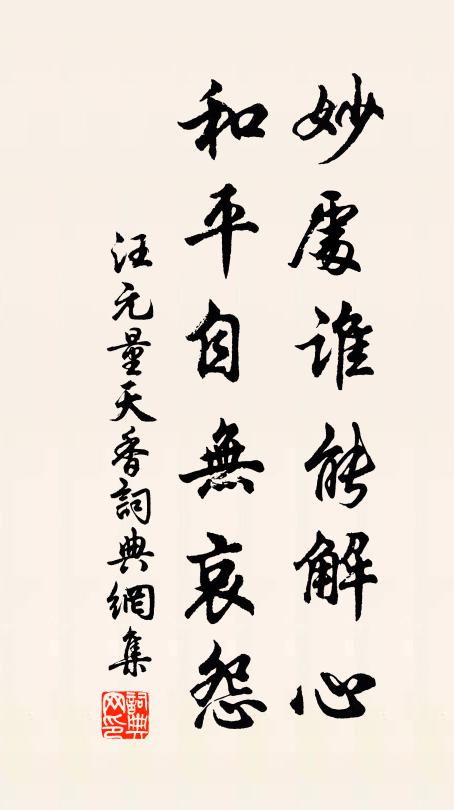 妙處誰能解心
和平自無哀怨
汪元量天香詞典網集
詞典网印